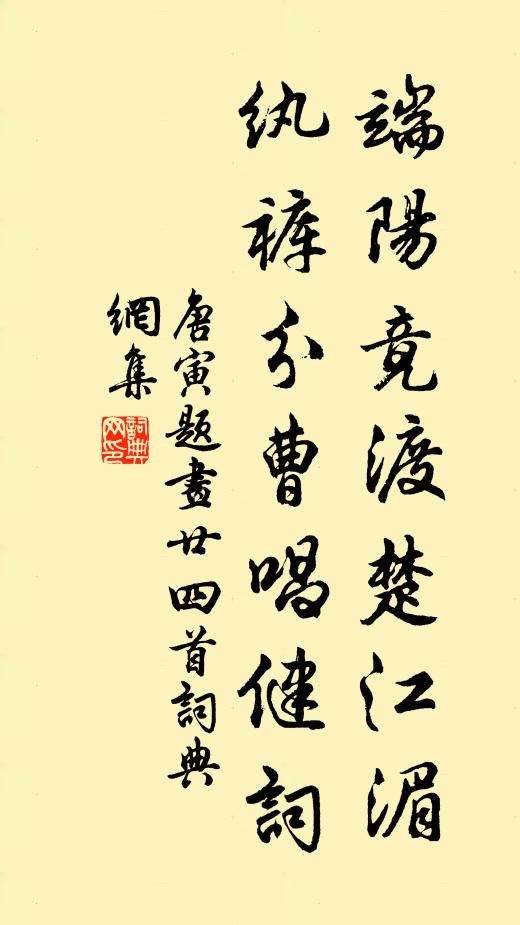 端陽竞渡楚江湄
纨裤分曹唱健詞
唐寅題畫廿四首詞典
網集
詞典网印